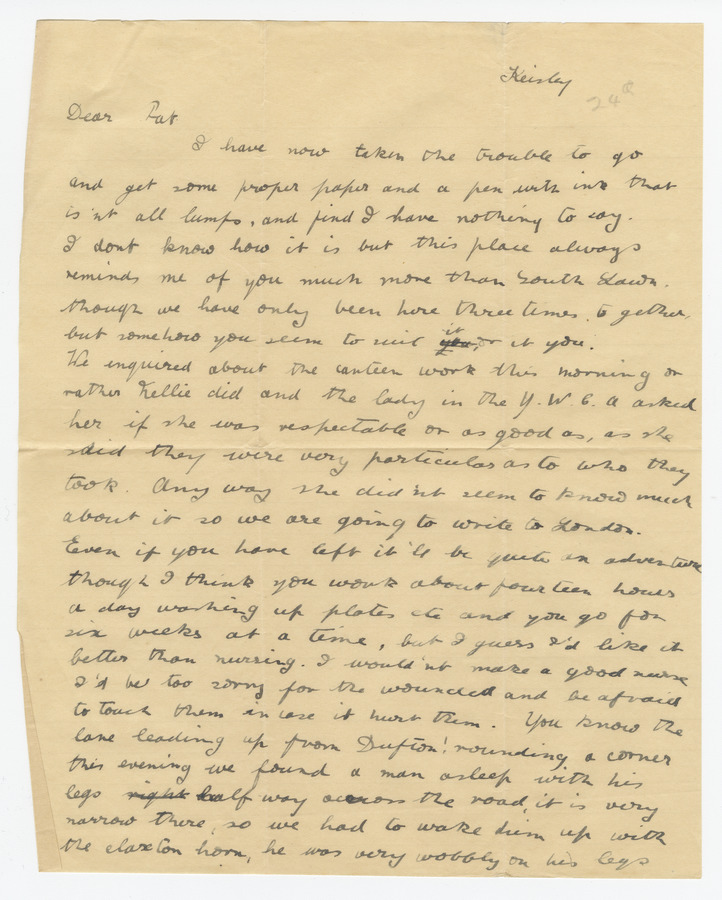 Keisley
24th
Dear Pat
I have now taken the trouble to go
and get some proper paper and a pen with ink that
is'nt all lumps, and find I have nothing to say.
I dont know how it is but this place always
reminds me of you much more than South Lawn.
though we have only been here three times to gether,
but somehow you seem to suit you, it or it you.
We enquired about the canteen work this morning or
rather Nellie did and the lady in the Y.W.C.a asked
her if she was respectable or as good as, as she
said they were very particular as to who they
took. Any way she did'nt seem to know much
about it so we are going to write to London.
Even if you have left it'll be quite an adventure
though I think you work about fourteen hours
a day washing up plates etc and you go for
six weeks at a time, but I guess I'd like it
better than nursing. I would'nt make a good nurse
I'd be too sorry for the wounded and be afraid
to touch them incase it hurt them. You know the
lane leading up from Dufton! rounding a corner
this evening we found a man asleep with his
legs right half way across the road, it is very
narrow there, so we had to wake him up with
the claxton horn, he was very wobbly on his legs